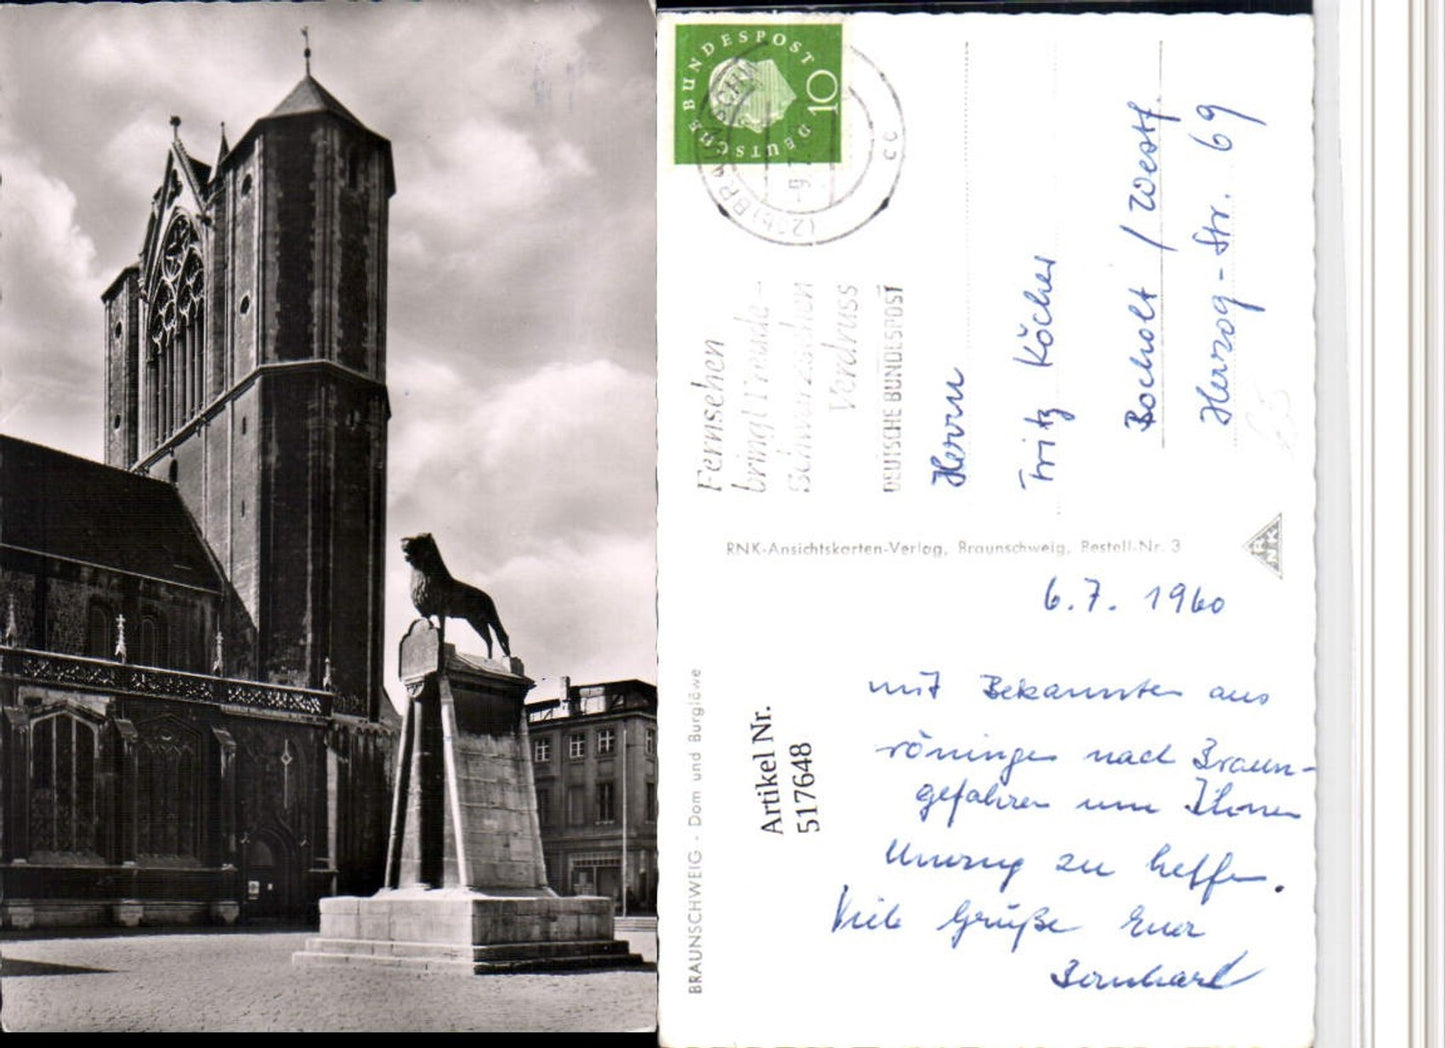 DEUTSCHE BUNDESPOST
10
Fernsehen
bringt Freude –
Schwarzsehen
Verdruss
DEUTSCHE BUNDESPOST
Herrn
Fritz Köcher
Bocholt / Westf.
Herzog-Str. 69
RNK-Ansichtskarten-Verlag, Braunschweig, Bestell-Nr. 3
RNK
BRAUNSCHWEIG - Dom und Burglöwe
Artikel Nr.
517648
6.7. 1960
mit Bekannten aus
nach Braun-
gefahren um Ihnen
Umzug zu helfen.
Viele Grüße Euer
Bernhard